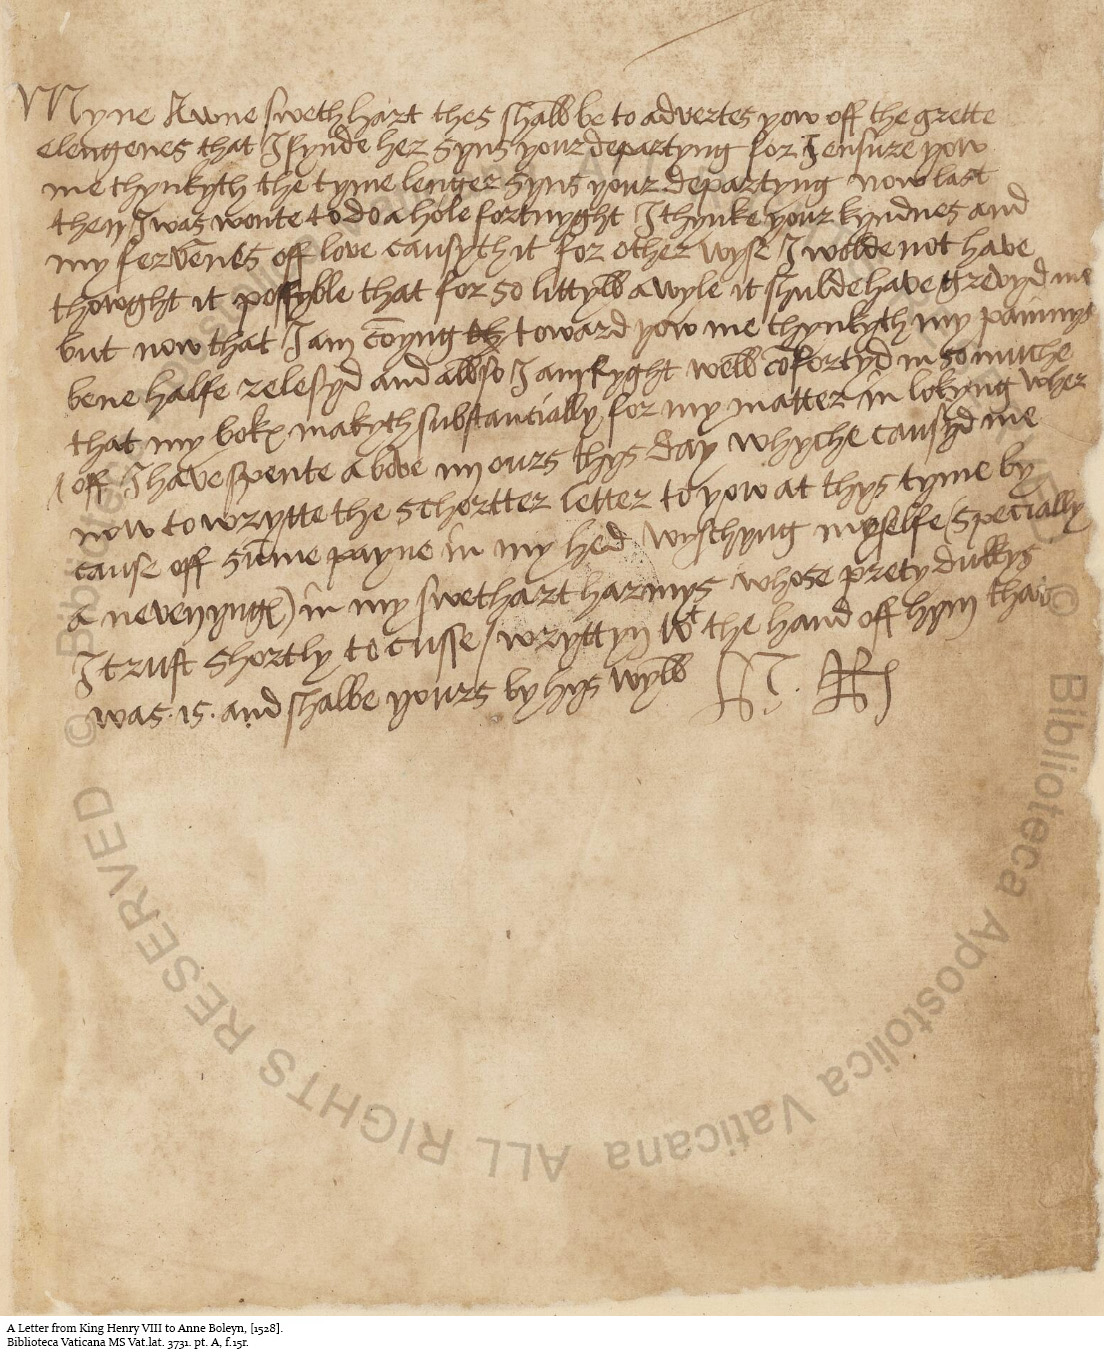 Myne Awne swethhart thes shall be to advertes yow off the grette
elengenes that I fynde her syns your departyng for I ensure yow
me thynkyth the tyme lenger syns your departyng now last
then I was wonte to do a hole fortnyght I thynke your kyndnes and
my fervēnes off love causyth it for other wyse I wolde not have
thowght it possyble that for so littyll a wyle it shulde have grevyd me
but now that I am cōyng toward yow me thynkyth my painnys
bene halfe relesyd and allso I am ryght well cōfortyd in so muche
that my bokes makyth substancially for my matter in lokyng wher
off I have spente a bove iiij ours thys day whyche causyd me
now to wrytte the schortter letter to yow at thys tyme by
cause off sūme payne in my hed wyschyng my selfe (specially
a nevenynge) in my swethart harmys whose prety dukkys
I trust shortly to cusse / wryttyn wt the hand off hym that
was .is. and shalbe yours by hys wyll H. R
© Biblioteca Apostolica Vaticana ALL RIGHTS RESERVED
A Letter from King Henry VIII to Anne Boleyn, [1528].
Biblioteca Vaticana MS Vat.lat. 3731. pt. A, f.15r.